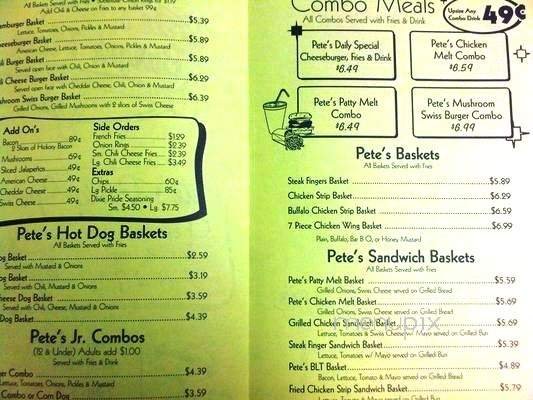 All Baskets Served with Fries • Substitute Onion Rings for $1.19
Add Chili & Cheese on Fries to any basket 99¢
mburger Basket $5.39
Lettuce, Tomatoes, Onions, Pickles & Mustard
eeseburger Basket $5.89
American Cheese, Lettuce, Tomatoes, Onions, Pickles & Mustard
li Burger Basket $5.89
Served open face with Chili, Onion & Mustard
li Cheese Burger Basket $6.29
Served open face with Cheddar Cheese, Chili, Onion & Mustard
shroom Swiss Burger Basket $6.39
Grilled Onions, Grilled Mushrooms with 2 slices of Swiss Cheese
Add On's
Bacon 89¢
2 Slices of Hickory Bacon
Mushrooms 69¢
Sliced Jalapeños 49¢
American Cheese 49¢
Cheddar Cheese 49¢
Swiss Cheese 49¢
Side Orders
French Fries $1.29
Onion Rings $2.39
Sm. Chili Cheese Fries $2.39
Lg. Chili Cheese Fries $3.49
Extras
Chips 60¢
Lg Pickle 85¢
Dixie Pride Seasoning
Sm. $4.50 • Lg. $7.75
Pete's Hot Dog Baskets
All Baskets Served with Fries
og Basket $2.59
Served with Mustard & Onions
og Basket $3.19
Served with Chili, Mustard & Onions
heese Dog Basket $3.59
Served with Chili, Cheese, Mustard & Onions
Dog Basket $4.39
Pete's Jr. Combos
(12 & Under) Adults add $1.00
Served with Fries
er Combo $4.39
Lettuce, Tomatoes, Onions, Pickles & Mustard
Combo or Corn Dog $3.59
Combo Meals
All Combos Served with Fries & Drink
Upsize Any
Combo Drink
49¢
Pete's Daily Special
Cheeseburger, Fries & Drink
$6.49
Pete's Chicken
Melt Combo
$6.59
Pete's Patty Melt
Combo
$6.49
Pete's Mushroom
Swiss Burger Combo
$6.99
Pete's Baskets
All Baskets Served with Fries
Steak Fingers Basket $5.89
Chicken Strip Basket $6.29
Buffalo Chicken Strip Basket $6.59
7 Piece Chicken Wing Basket $6.99
Plain, Buffalo, Bar B Q, or Honey Mustard
Pete's Sandwich Baskets
All Baskets Served with Fries
Pete's Patty Melt Basket $5.59
Grilled Onions, Swiss Cheese served on Grilled Bread
Pete's Chicken Melt Basket $5.69
Grilled Onions, Swiss Cheese served on Grilled Bread
Grilled Chicken Sandwich Basket $5.69
Lettuce, Tomatoes & Swiss Cheese w/ Mayo served on Grilled Bun
Steak Finger Sandwich Basket $5.39
Lettuce, Tomatoes w/ Mayo served on Grilled Bun
Pete's BLT Basket $4.89
Bacon, Lettuce, Tomato & Mayo served on Grilled Bread
Fried Chicken Strip Sandwich Basket $5.79
Lettuce, Tomato & Mayo served on Grilled Bun
menupix